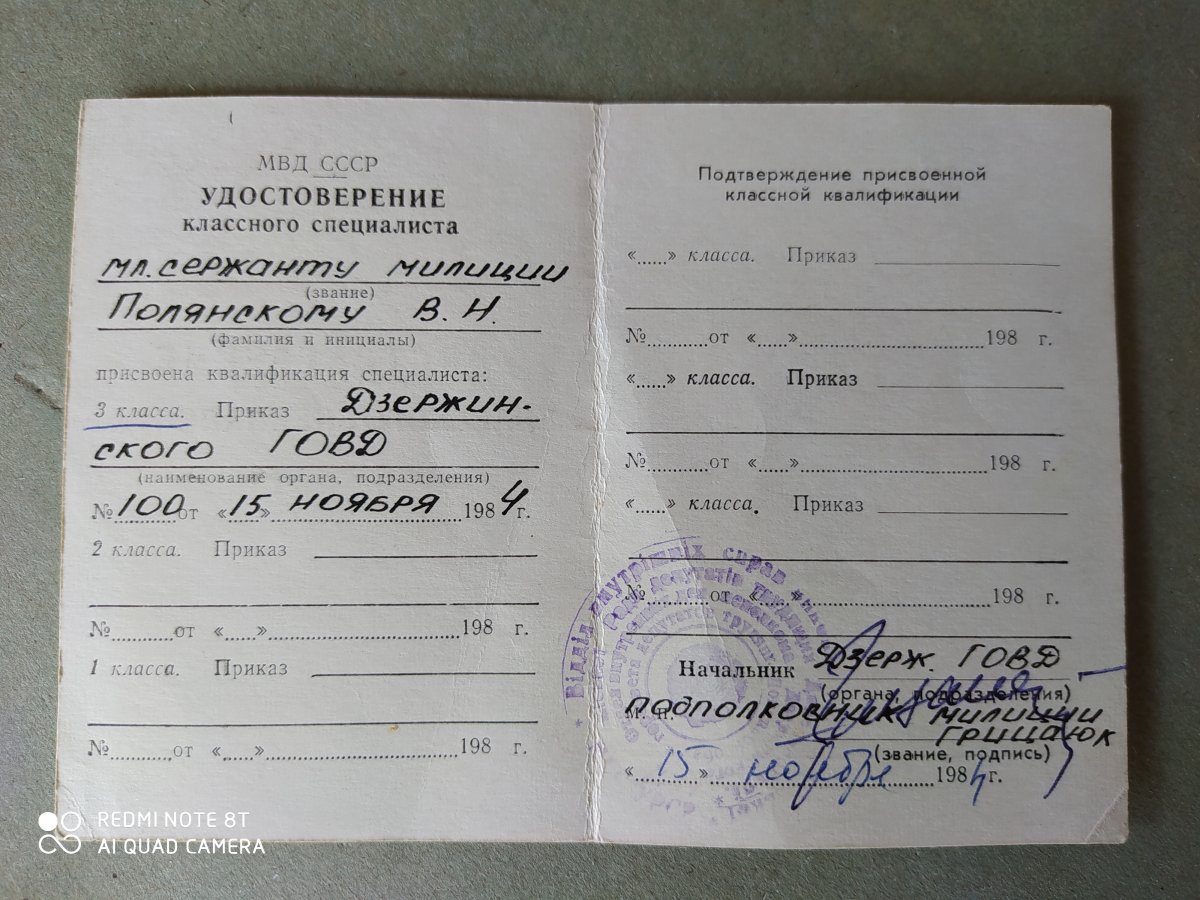 МВД СССР
УДОСТОВЕРЕНИЕ
классного специалиста
мл. сержанту милиции
(звание)
Полянскому В. Н.
(фамилия и инициалы)
присвоена квалификация специалиста:
3 класса. Приказ Дзержин-
ского ГОВД
(наименование органа, подразделения)
№ 100 от «15» ноября 1984 г.
2 класса. Приказ
№ от «.....» 198 г.
1 класса. Приказ
№ от «.....» 198 г.
Подтверждение присвоенной
классной квалификации
«.....» класса. Приказ
№ от «.....» 198 г.
«.....» класса. Приказ
№ от «.....» 198 г.
«.....» класса. Приказ
№ от «.....» 198 г.
Начальник Дзерж. ГОВД
(органа, подразделения)
М. П. подполковник милиции
Грицаюк
(звание, подпись)
«15» ноября 1984 г.
Відділ внутрішніх справ
депутатів трудящих
REDMI NOTE 8T
AI QUAD CAMERA